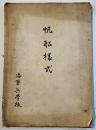 帆船様式
海軍兵学校